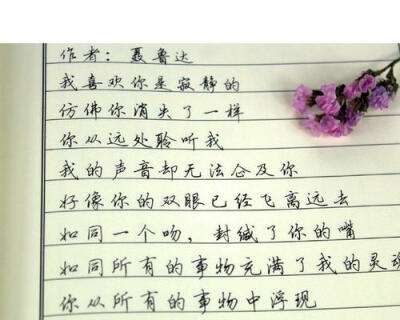 作者：聂鲁达
我喜欢你是寂静的
仿佛你消失了一样
你从远处聆听我
我的声音却无法企及你
好像你的双眼已经飞离远去
如同一个吻，封缄了你的嘴
如同所有的事物充满了我的灵魂
你从所有的事物中浮现